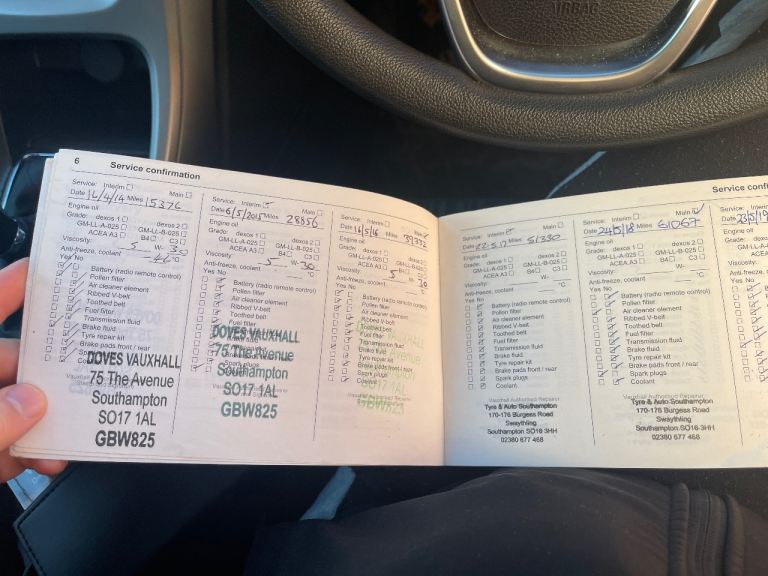 AIRBAG
6 Service confirmation
Service: Interim Main
Date 16/4/14 Miles 15376
Engine oil
Grade: dexos 1 dexos 2
GM-LL-A-025 GM-LL-B-025
ACEA A3 B4 C3
Viscosity: 5 W- 30
Anti-freeze, coolant -46 °C
Yes No
Battery (radio remote control)
Pollen filter
Air cleaner element
Ribbed V-belt
Toothed belt
Fuel filter
Transmission fluid
Brake fluid
Tyre repair kit
Brake pads front / rear
DOVES VAUXHALL
75 The Avenue
Southampton
SO17 1AL
GBW825
Service: Interim Main
Date 6/5/2015 Miles 28856
Engine oil
Grade: dexos 1 dexos 2
GM-LL-A-025 GM-LL-B-025
ACEA A3 B4 C3
Viscosity: 5 W- 30
Anti-freeze, coolant °C
Yes No
Battery (radio remote control)
Pollen filter
Air cleaner element
Ribbed V-belt
Toothed belt
Fuel filter
DOVES VAUXHALL
75 The Avenue
Southampton
SO17 1AL
GBW825
Service: Interim Main
Date 16/5/16 Miles 39332
Engine oil
Grade: dexos 1 dexos 2
GM-LL-A-025 GM-LL-B-025
ACEA A3 B4 C3
Viscosity: 5 W- 30
Anti-freeze, coolant °C
Yes No
Battery (radio remote control)
Pollen filter
Air cleaner element
Ribbed V-belt
Toothed belt
Fuel filter
Transmission fluid
Brake fluid
Tyre repair kit
Brake pads front / rear
Spark plugs
Coolant
Service confi
Service: Interim Main
Date 22.5.17 Miles 51330
Engine oil
Grade: dexos 1 dexos 2
GM-LL-A-025 GM-LL-B-025
ACEA A3 B4 C3
Viscosity: W-
Anti-freeze, coolant °C
Yes No
Battery (radio remote control)
Pollen filter
Air cleaner element
Ribbed V-belt
Toothed belt
Fuel filter
Transmission fluid
Brake fluid
Tyre repair kit
Brake pads front / rear
Spark plugs
Coolant
Vauxhall Authorised Repairer
Tyre & Auto Southampton
170-176 Burgess Road
Swaythling
Southampton SO16 3HH
02380 677 468
Service: Interim Main
Date 24/5/18 Miles 61067
Engine oil
Grade: dexos 1 dexos 2
GM-LL-A-025 GM-LL-B-025
ACEA A3 B4 C3
Viscosity: W-
Anti-freeze, coolant °C
Yes No
Battery (radio remote control)
Pollen filter
Air cleaner element
Ribbed V-belt
Toothed belt
Fuel filter
Transmission fluid
Brake fluid
Tyre repair kit
Brake pads front / rear
Spark plugs
Coolant
Vauxhall Authorised Repairer
Tyre & Auto Southampton
170-176 Burgess Road
Swaythling
Southampton SO16 3HH
02380 677 468
Service:
Date 23/5/19
Engine oil
Grade:
Viscosity:
Anti-freeze,
Yes No